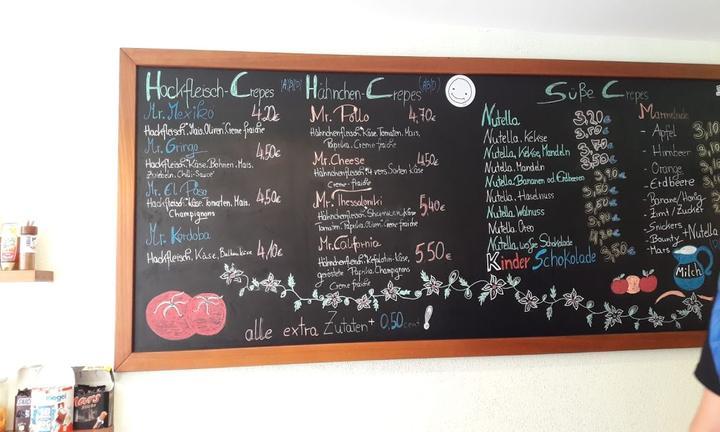 Hackfleisch-Crepes
Mr. Mexiko 4,20€
Hackfleisch, Mais, Oliven, Creme fraiche
Mr. Gringo 4,50€
Hackfleisch, Käse, Bohnen, Mais,
Zwiebeln, Chili-Sauce
Mr. El Paso 4,50€
Hackfleisch, Käse, Tomaten, Mais,
Champignons
Mr. Kordoba
Hackfleisch, Käse, 4,10€
Hähnchen-Crepes
Mr. Pollo 4,70€
Hähnchenfleisch, Käse, Tomaten, Mais,
Paprika, Creme fraiche
Mr. Cheese 4,50€
Hähnchenfleisch, 4 vers. Sorten Käse
Creme-fraiche
Mr. Thessaloniki 5,40€
Hähnchenfleisch, Käse
Tomaten, Paprika, Oliven, Creme fraiche
Mr. California 5,50€
Hähnchenfleisch, Käse,
geröstete Paprika, Champignons
Creme fraiche
alle extra Zutaten + 0,50 cent!
Süße Crepes
Nutella 3,20€
Nutella, Kekse
Nutella, Kekse, Mandeln
Nutella, Mandeln
Nutella, Bananen od Erdbeeren
Nutella, Haselnuss
Nutella Walnuss
Nutella Oreo
Nutella, weiße Schokolade
Kinder Schokolade
Marmelade
- Apfel
- Himbeer
- Orange
- Erdbeere
- Banane/Honig
- Zimt/Zucker
- Snickers
- Bounty + Nutella
- Mars
Milch